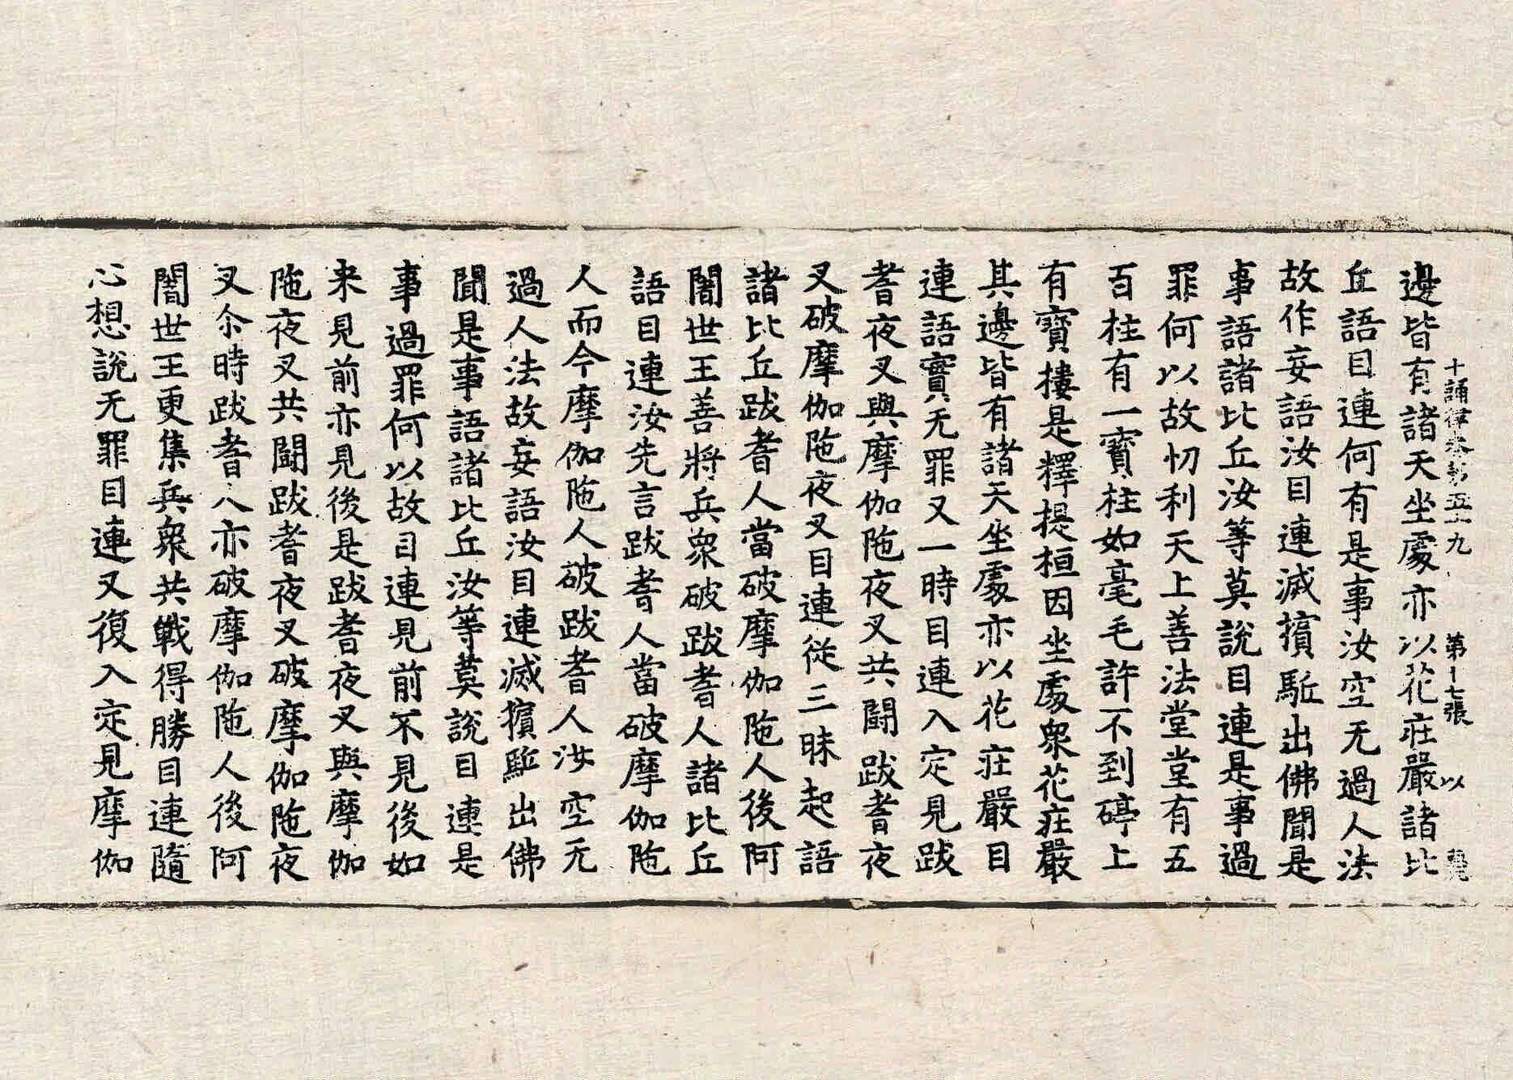 十誦律卷第五十九 第十七張 以
邊皆有諸天坐處亦以花莊嚴諸比
丘語目連何有是事汝空无過人法
故作妄語汝目連滅擯駈出佛聞是
事語諸比丘汝等莫說目連是事過
罪何以故忉利天上善法堂堂有五
百柱有一寶柱如毫毛許不到碍上
有寶樓是釋提桓因坐處衆花莊嚴
其邊皆有諸天坐處亦以花莊嚴目
連語實无罪又一時目連入定見跋
耆夜叉與摩伽陁夜叉共鬪跋耆夜
叉破摩伽陁夜叉目連從三昧起語
諸比丘跋耆人當破摩伽陁人後阿
闍世王善將兵衆破跋耆人諸比丘
語目連汝先言跋耆人當破摩伽陁
人而今摩伽陁人破跋耆人汝空无
過人法故妄語汝目連滅擯駈出佛
聞是事語諸比丘汝等莫說目連是
事過罪何以故目連見前不見後如
来見前亦見後是跋耆夜叉與摩伽
陁夜叉共鬪跋耆夜叉破摩伽陁夜
叉尒時跋耆人亦破摩伽陁人後阿
闍世王更集兵衆共戰得勝目連隨
心想說无罪目連又復入定見摩伽